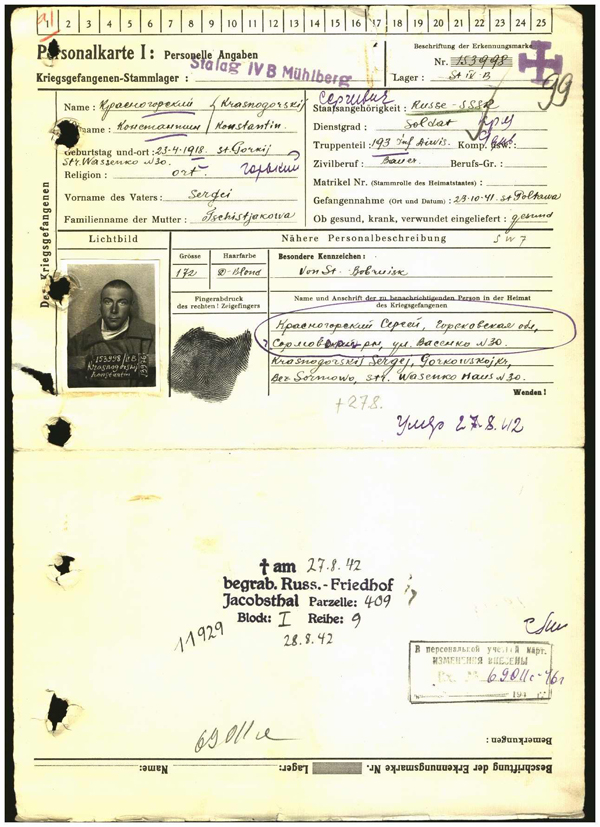 91
1 2 3 4 5 6 7 8 9 10 11 12 13 14 15 16 17 18 19 20 21 22 23 24 25
Personalkarte I: Personelle Angaben
Kriegsgefangenen-Stammlager: Stalag IV B Mühlberg
Beschriftung der Erkennungsmarke
Nr. 153998
Lager: St IV-B
99
Des Kriegsgefangenen
Name: Красногорский / Krasnogorskij
Константин / Konstantin
Geburtstag und -ort: 23-4-1918. st. Gorkij
Str. Waszenko N30. Горький
Religion: ort.
Vorname des Vaters: Sergei
Familienname der Mutter: Tschistjakowa
Сергевич
Staatsangehörigkeit: Russe-SSSR
Dienstgrad: Soldat
Truppenteil: 193 Inf Diwis. Komp. usw.
Zivilberuf: Bauer. Berufs-Gr.:
Matrikel Nr. (Stammrolle des Heimatstaates):
Gefangennahme (Ort und Datum): 23-10-41. st Poltawa
Ob gesund, krank, verwundet eingeliefert: gesund
Lichtbild
Nähere Personalbeschreibung
Grösse
172
Haarfarbe
D-Blond
Besondere Kennzeichen:
Von St. Bobruisk
Fingerabdruck
des rechten! Zeigefingers
Name und Anschrift der zu benachrichtigenden Person in der Heimat
des Kriegsgefangenen
Красногорский Сергей, Горьковская обл,
Сормовский рн, ул. Васенко N30.
Krasnogorskij Sergej, Gorkowskoj kr,
Bez Sormowo, str. Wasenko Haus N30.
153998/IVB
Krasnogorskij
Konstantin
Wenden!
+27.8.
Умер 27.8.42
† am 27.8.42
begrab. Russ.-Friedhof
Jacobsthal Parzelle: 409
Block: I Reihe: 9
28.8.42
11929
В персональной учетной карт.
ИЗМЕНЕНИЯ ВНЕСЕНЫ
194
Bemerkungen:
Beschriftung der Erkennungsmarke Nr. Lager: Name: